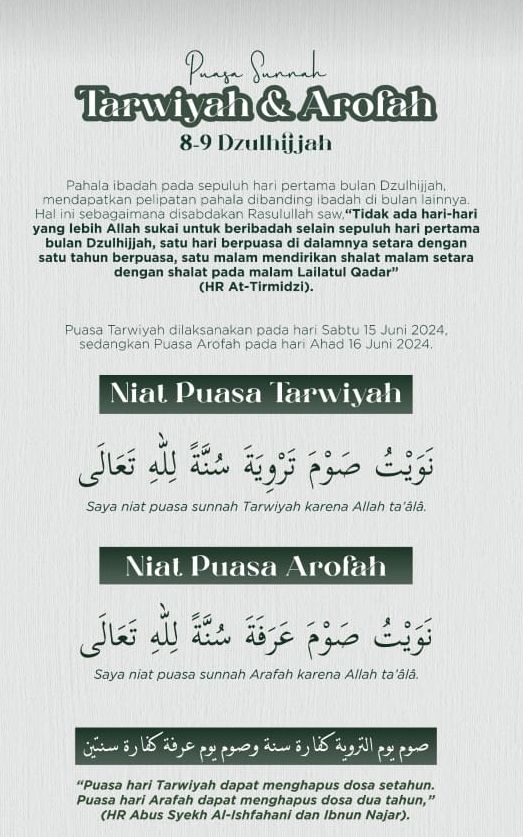 Puasa Sunnah
Tarwiyah & Arofah
8-9 Dzulhijjah
Pahala ibadah pada sepuluh hari pertama bulan Dzulhijjah,
mendapatkan pelipatan pahala dibanding ibadah di bulan lainnya.
Hal ini sebagaimana disabdakan Rasulullah saw,“Tidak ada hari-hari
yang lebih Allah sukai untuk beribadah selain sepuluh hari pertama
bulan Dzulhijjah, satu hari berpuasa di dalamnya setara dengan
satu tahun berpuasa, satu malam mendirikan shalat malam setara
dengan shalat pada malam Lailatul Qadar”
(HR At-Tirmidzi).
Puasa Tarwiyah dilaksanakan pada hari Sabtu 15 Juni 2024,
sedangkan Puasa Arofah pada hari Ahad 16 Juni 2024.
Niat Puasa Tarwiyah
نَوَيْتُ صَوْمَ تَرْوِيَةَ سُنَّةً لِلّٰهِ تَعَالَى
Saya niat puasa sunnah Tarwiyah karena Allah ta’âlâ.
Niat Puasa Arofah
نَوَيْتُ صَوْمَ عَرَفَةَ سُنَّةً لِلّٰهِ تَعَالَى
Saya niat puasa sunnah Arafah karena Allah ta’âlâ.
صوم يوم التروية كفارة سنة وصوم يوم عرفة كفارة سنتين
“Puasa hari Tarwiyah dapat menghapus dosa setahun.
Puasa hari Arafah dapat menghapus dosa dua tahun,”
(HR Abus Syekh Al-Ishfahani dan Ibnun Najar).